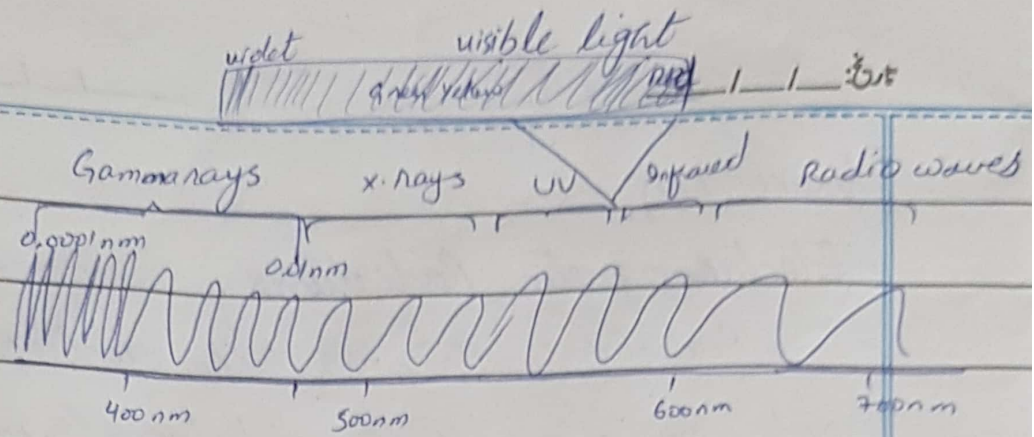 violet visible light
Red
Gamma rays x-rays UV Infrared Radio waves
0.0001nm
0.01nm
400nm 500nm 600nm 700nm